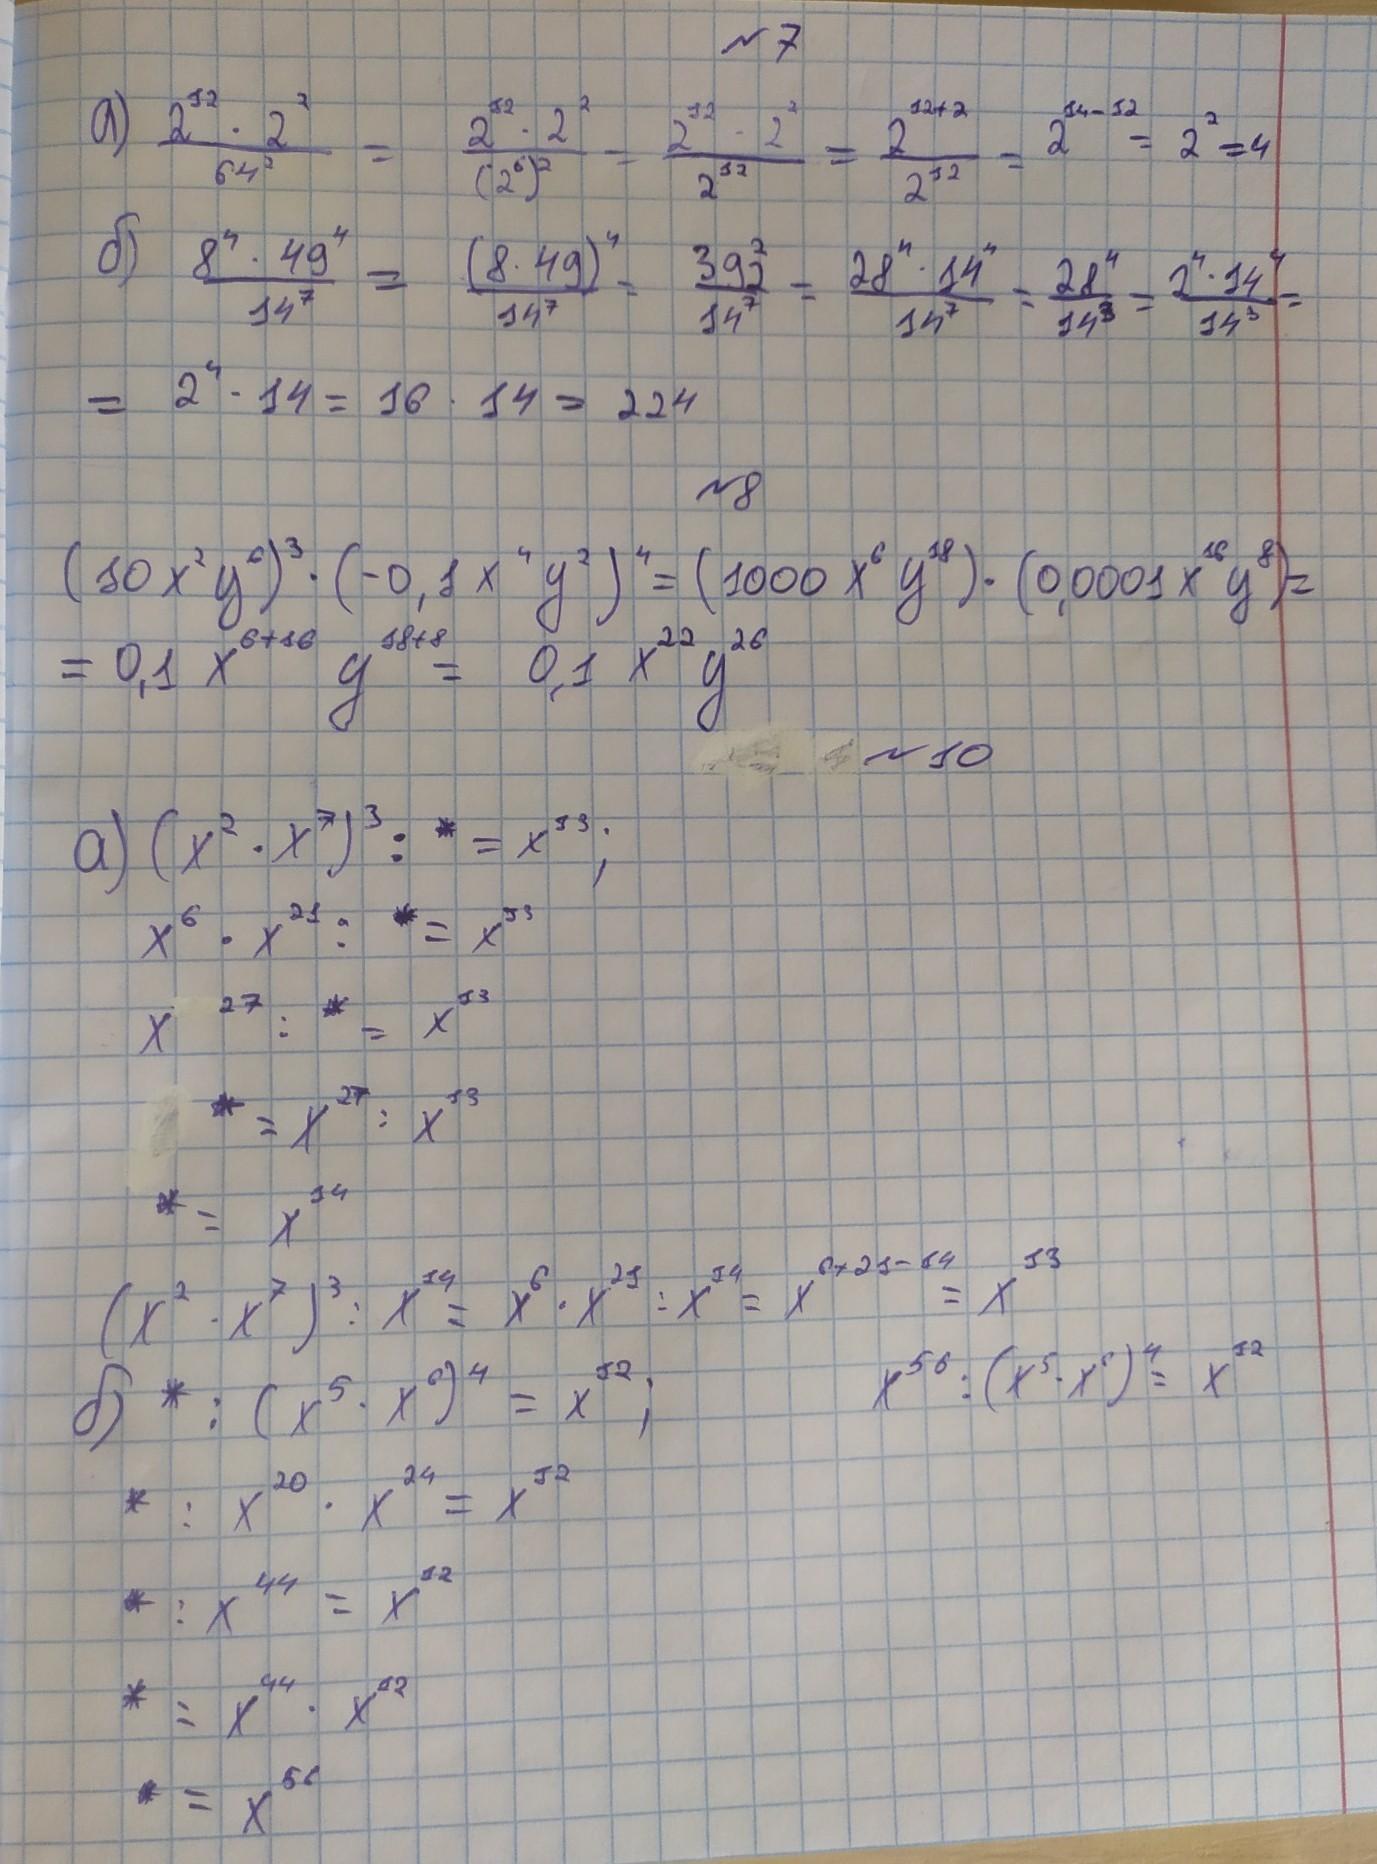 №7
а) 2^12 · 2^2 / 64^2 = 2^12 · 2^2 / (2^6)^2 = 2^12 · 2^2 / 2^12 = 2^12+2 / 2^12 = 2^14-12 = 2^2 = 4
б) 8^4 · 49^4 / 14^7 = (8 · 49)^4 / 14^7 = 392^2 / 14^7 = 28^4 · 14^4 / 14^7 = 28^4 / 14^3 = 2^4 · 14^4 / 14^3 =
= 2^4 · 14 = 16 · 14 = 224
№8
(10x^2y^6)^3 · (-0,1x^4y^2)^4 = (1000x^6y^18) · (0,0001x^16y^8) =
= 0,1x^6+16 y^18+8 = 0,1x^22y^26
№10
а) (x^2 · x^7)^3 : * = x^13;
x^6 · x^21 : * = x^13
x^27 : * = x^13
* = x^27 : x^13
* = x^14
(x^2 · x^7)^3 : x^14 = x^6 · x^21 : x^14 = x^6+21-14 = x^13
б) * : (x^5 · x^6)^4 = x^12; x^56 : (x^5 · x^6)^4 = x^12
* : x^20 · x^24 = x^12
* : x^44 = x^12
* = x^44 · x^12
* = x^56